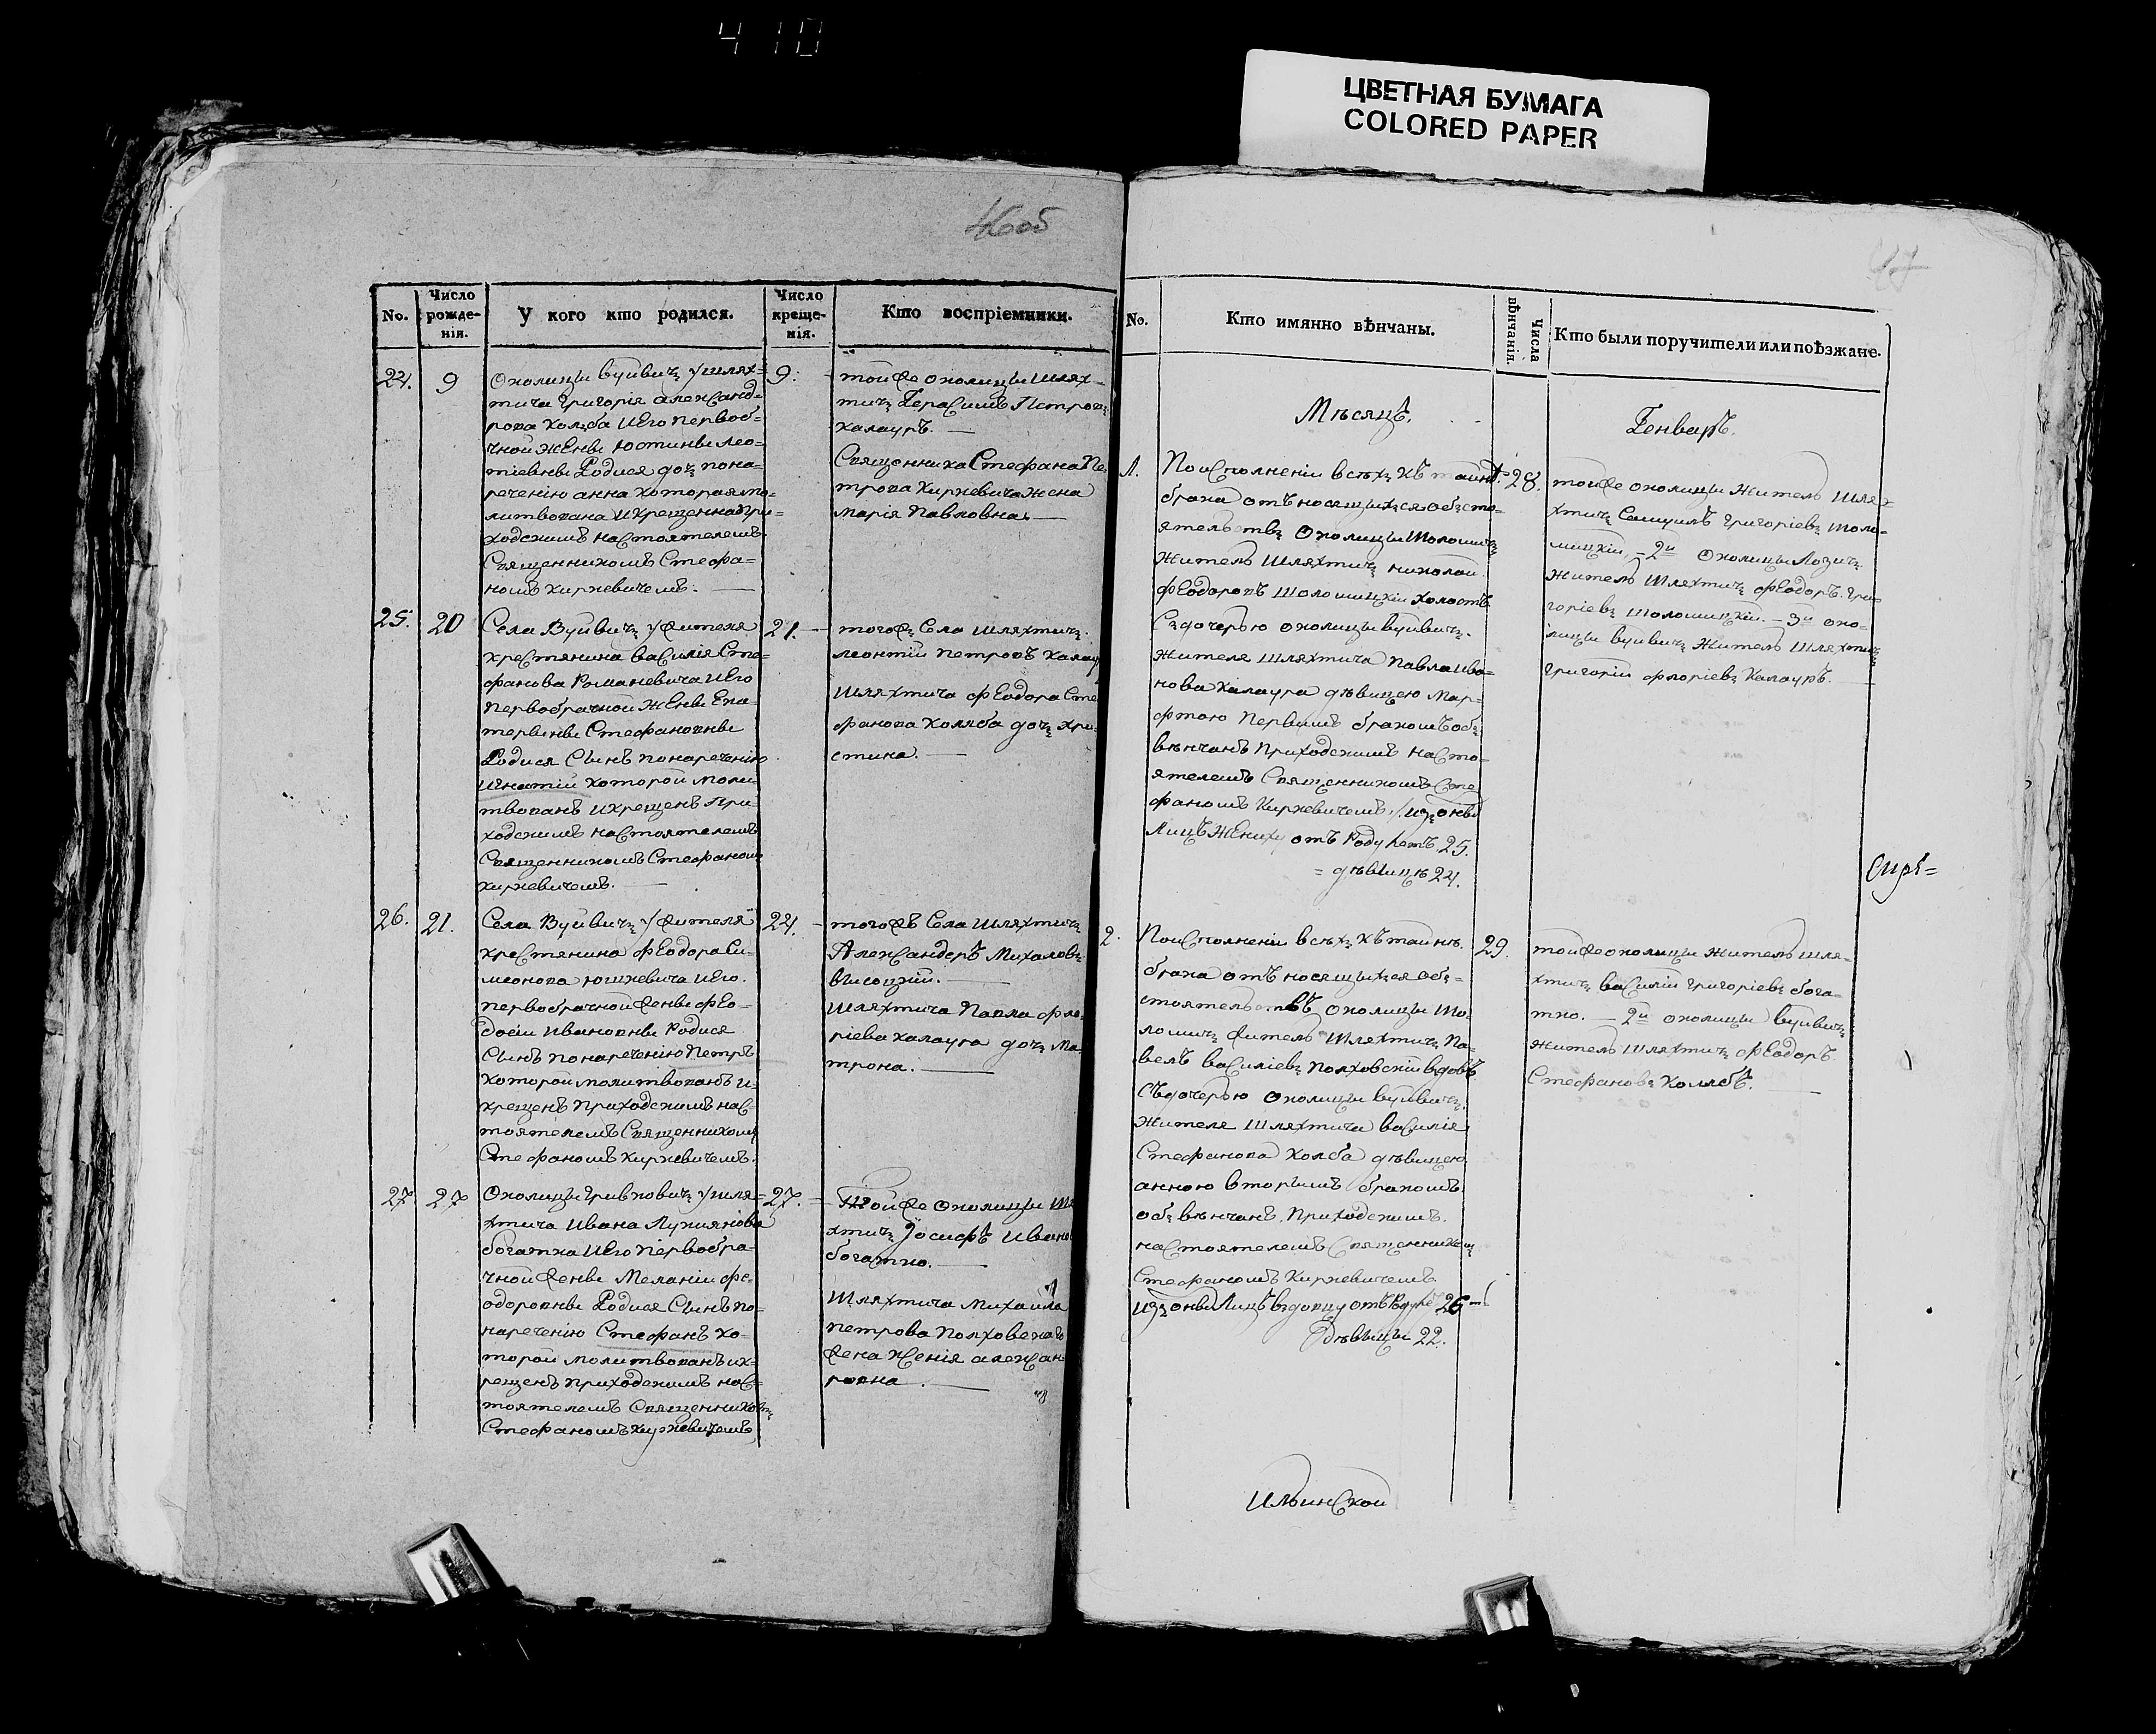 410
ЦВЕТНАЯ БУМАГА
COLORED PAPER
46об
47
No.
Число рожденія.
У кого кто родился.
Число крещенія.
Кто воспріемники.
24.
9
Околицы Вуйвичъ у шлях=
тича Григорія Александ=
рова Колба и Его первоб=
чной жЕны Юстины Лео=
тіевны Родися дочъ пона=
реченію Анна которая мо=
литвована и крещенна при=
ходскимъ настоятелемъ
Священникомъ Стефа=
номъ Киркевичемъ.
9.
тойже околицы шлях=
тичъ Герасимъ Петровъ
Калауръ.
Священника Стефана Пе
трова Киркевича жена
Марія Павловна.
25.
20
Села Вуйвичъ у жителя
крестянина Василія Сте=
фанова Романевича и Его
первобрачной жЕны Ека=
терины Стефановны
Родися Сынъ понареченію
Игнатій которой моли
твованъ и крещенъ при=
ходскимъ настоятелемъ
Священникомъ Стефаномъ
Киркевичемъ.
21.
тогожъ Села шляхтичъ
Леонтій Петровъ Калау
шляхтича фЕодора Сте
фанова Колба дочъ Хри
стина.
26.
21.
Села Вуйвичъ у жителя
крестянина фЕодора Си=
меонова Юшкевича и Его
первобрачной жены фЕо=
досіи Ивановны Родися
Сынъ понареченію Петръ
которой молитвованъ и
крещенъ приходскимъ нас=
тоятелемъ Священникомъ
Стефаномъ Киркевичемъ.
24.
тогожъ Села шляхтичъ
Александеръ Михаловъ
Высоцкій.
шляхтича Павла фло
ріева Калаура дочъ Ма
трона.
27
27
Околицы Гривковичъ у шля=
хтича Ивана Лукиянова
богатка и Его первобра=
чной жены Меланіи фе=
одоровны Родися Сынъ по=
нареченію Стефанъ ко=
торой молитвованъ и к=
рещенъ приходскимъ нас=
тоятелемъ Священникомъ
Стефаномъ Киркевичемъ
27.
Тойже околицы шля
хтичъ Іосифъ Ивано
богатко.
шляхтича Михаила
Петрова
жена Ксенія Алексан
ровна.
No.
Кто имянно вѣнчаны.
Числа вѣнчанія.
Кто были поручители или поѣзжане.
Мѣсяцъ.
Генварь.
1.
По исполненіи всѣхъ къ тайнѣ
брака отъносящихъся обсто=
ятельствъ Околицы Шоломичъ
житель шляхтичъ Николай
фЕодоровъ Шоломицкій холостъ
Съ дочерью околицы Вуйвичъ
жителя шляхтича Павла Ива=
нова Калаура дѣвицею Мар=
фтою первымъ бракомъ об=
вѣнчанъ приходскимъ насто=
ятелемъ Священникомъ Сте
фаномъ Киркевичемъ, изъ оныхъ
лицъ жЕниху отъ роду летъ 25.
= дѣвицѣ 24.
28.
тойже околицы житель шлях
хтичъ Самуилъ Григоріевъ Шоло=
мицкій, – 2й Околицы Лозичъ
житель шляхтичъ фЕодоръ Гри=
горіевъ Шоломицкій. – 3й око=
лицы Вуйвичъ житель шляхтичъ
Григорій флоріевъ Калауръ.
2.
По исполненіи всѣхъ къ тайнѣ
брака отъносящихся об=
стоятельствъ околицы Шо=
ломичъ житель шляхтичъ Па=
велъ Василіевъ Полховскій вдовъ
Съ дочерью околицы Вуйвичъ
жителя шляхтича Василія
Стефанова Колба дѣвицею
Анною вторымъ бракомъ
обвѣнчанъ приходскимъ
настоятелемъ Священникомъ
Стефаномъ Киркевичемъ
изъ оныхъ лицъ вдовцу отъ роду 26
дѣвицы 22.
29.
тойже околицы житель шля=
хтичъ Василій Григоріевъ бога=
тко. – 2й околицы Вуйвичъ
житель шляхтичъ фЕодоръ
Стефановъ Колбъ.
Ильинской